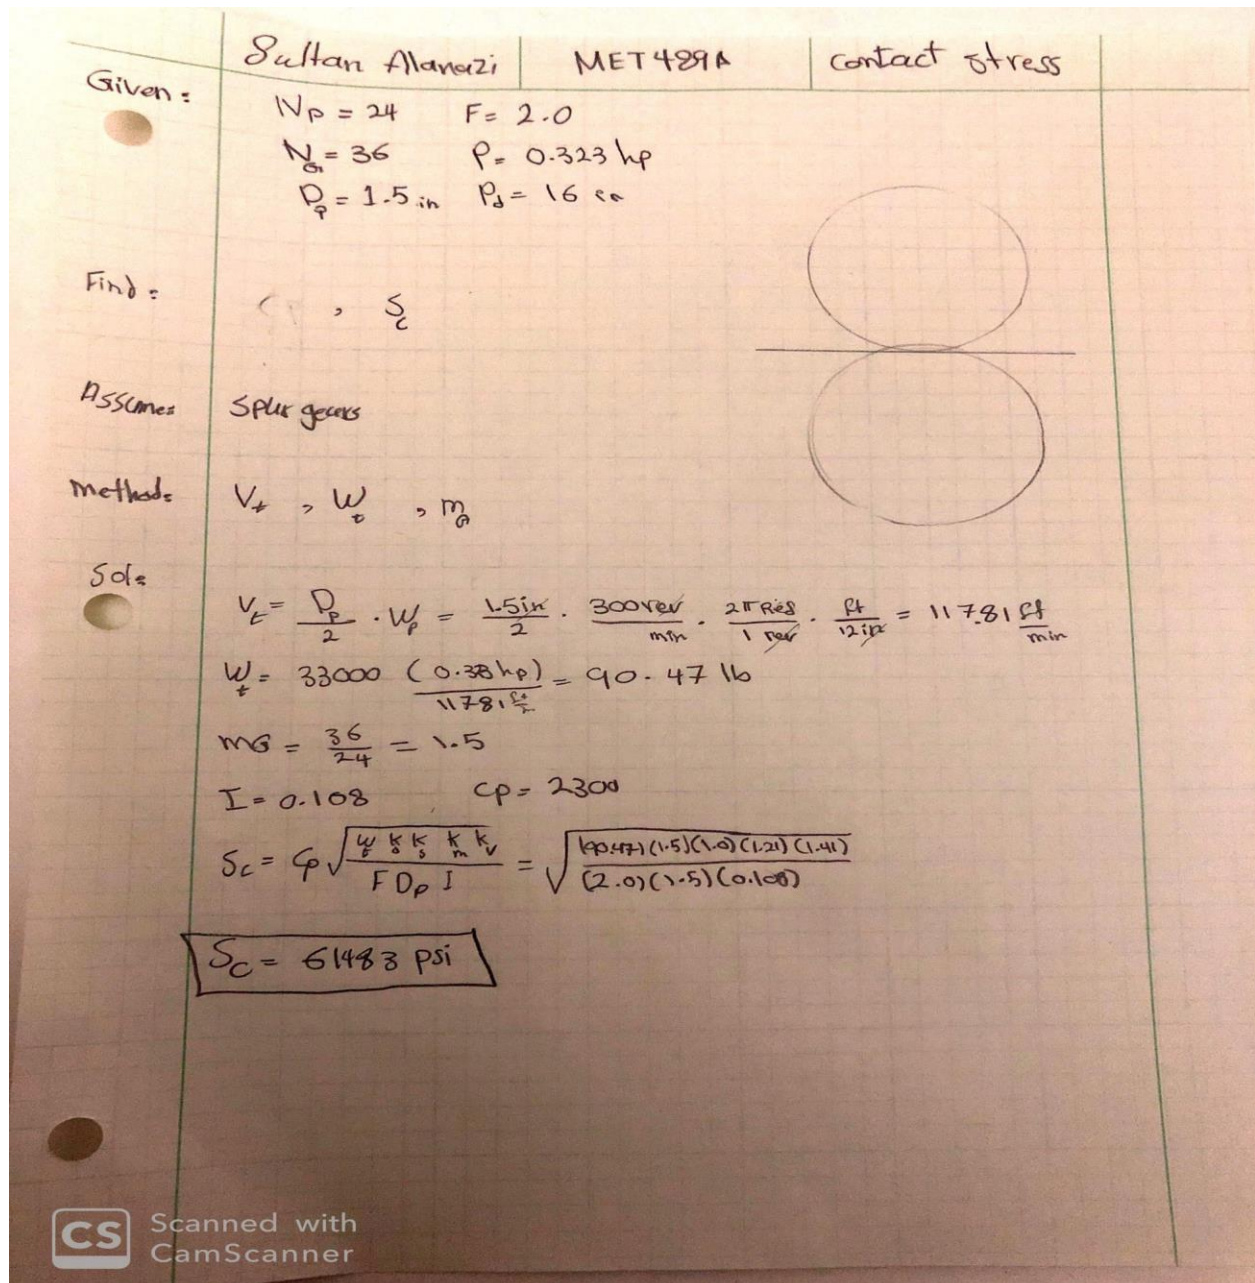 Sultan Alanazi | MET 489A | contact stress
Given:
Np = 24 F= 2.0
NG = 36 P= 0.323 hp
Dp = 1.5 in Pd = 16
Find: , Sc
Assume: Spur gears
Method: Vt , Wt , mG
Sol:
Vt = Dp/2 · Wp = 1.5in/2 · 300rev/min · 2π Rad/1 rev · ft/12 in = 117.81 ft/min
Wt = 33000 (0.323 hp)/117.81 ft/m = 90.47 lb
mG = 36/24 = 1.5
I = 0.108 Cp = 2300
Sc = Cp √(Wt Ko Ks Km Kv / F Dp I) = √((90.47)(1.5)(1.0)(1.21)(1.41) / (2.0)(1.5)(0.108))
Sc = 61483 psi
CS Scanned with
CamScanner